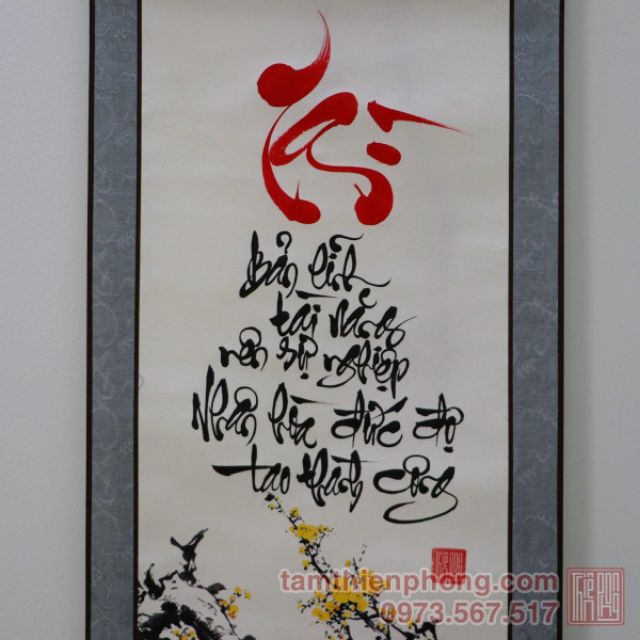 Bản lĩnh
tài năng
nên sự nghiệp
Nhân hòa đức độ
tạo thành công
tamthienphong.com
0973.567.517